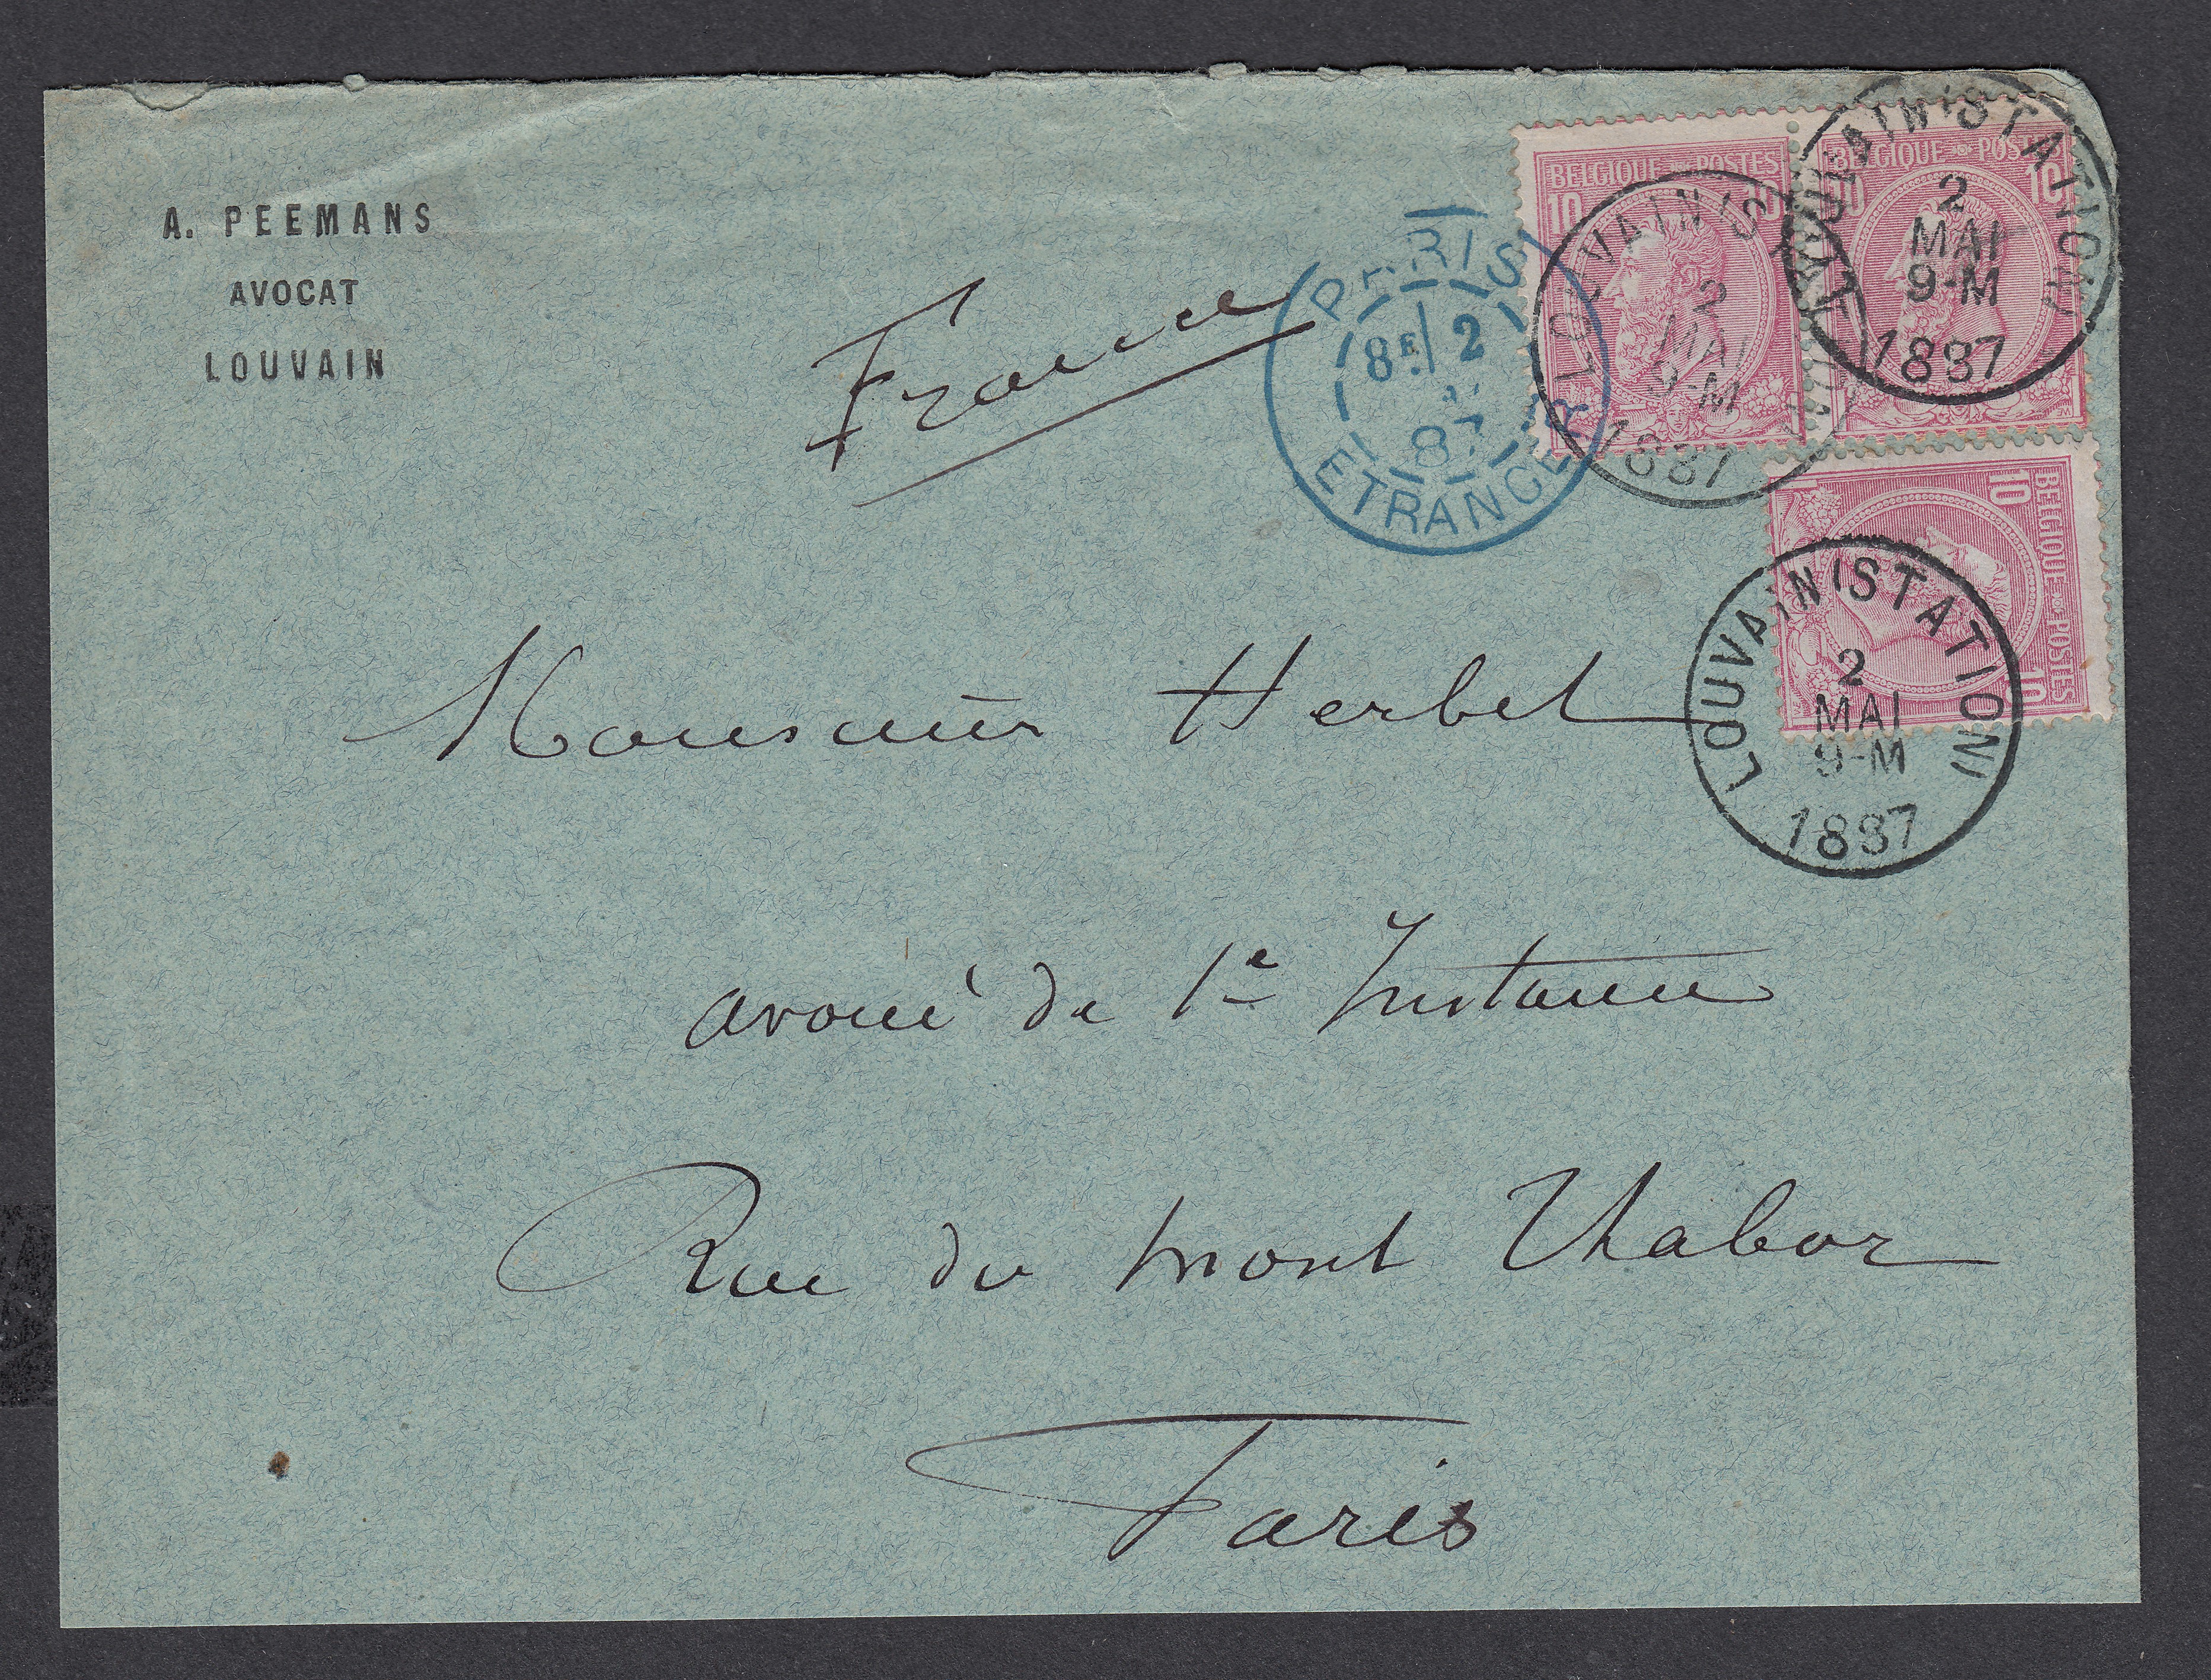 A. PEEMANS
AVOCAT
LOUVAIN
France
PARIS
8E 2
87
ETRANGER
BELGIQUE POSTES
10 10
LOUVAIN (STATION)
2
MAI
9-M
1887
BELGIQUE POSTES
10 10
LOUVAIN (STATION)
2
MAI
9-M
1887
BELGIQUE POSTES
10 10
LOUVAIN (STATION)
2
MAI
9-M
1887
Monsieur Herbet
avoué de 1e Instance
Rue du mont Thabor
Paris